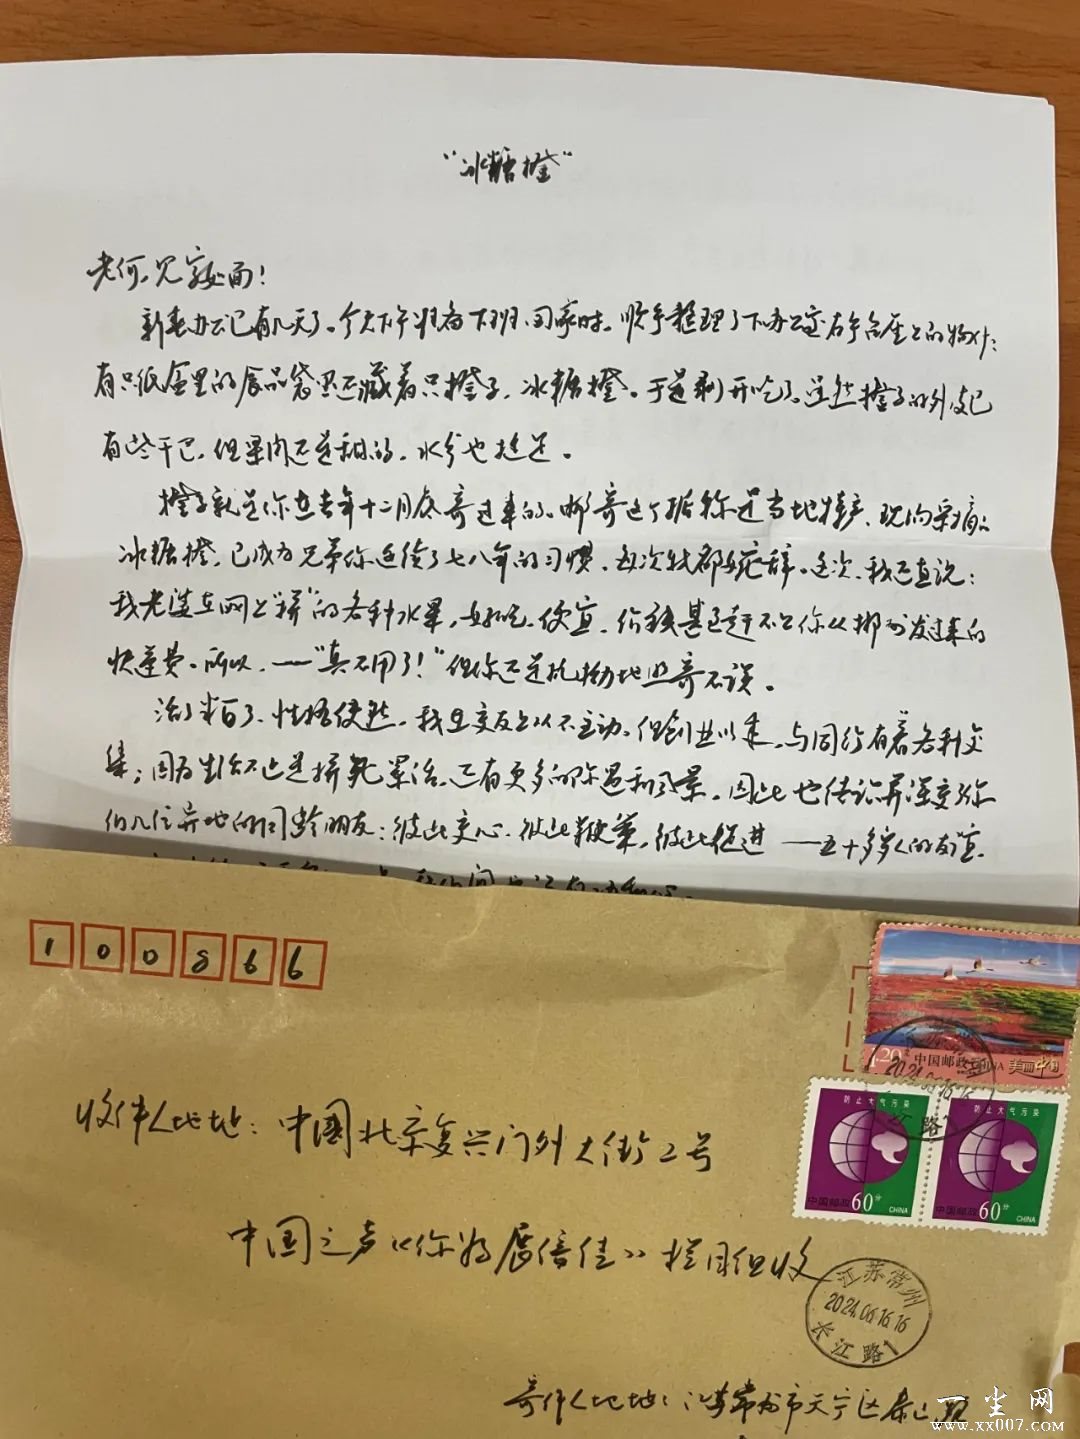 “冰糖橙”
老何，见字如面！
新春办公已有几天了。今天下午准备下班回家时，顺手整理了下办公室右手台座上的物什：
有只纸盒里的食品袋里还藏着只橙子，冰糖橙。于是剥开吃了。虽然橙子的外皮已
有些干巴，但果肉还是甜的，水分也挺足。
橙子就是你在去年十二月底寄过来的。邮寄这个据称是当地特产、现场采摘的
冰糖橙，已成为兄弟你连续了七八年的习惯，每次我都婉辞。这次，我还直说：
我老婆在网上“拼”的各种水果，好吃、便宜，价钱甚至赶不上你从郴州发过来的
快递费。所以，——“真不用了！”但你还是执拗地照寄不误。
活了半百了，性格使然，我在交友上从不主动。但创业以来，与同行有着各种交
集；因为生活不止是拼死累活，还有更多的际遇和风景。因此也结识并深交了你
们几位异地的同龄朋友：彼此交心、彼此鞭策，彼此促进——五十多岁人的友谊，
100866
收件人地址：中国北京复兴门外大街2号
中国之声《你好层倍佳》栏目组收
寄件人地址：江苏常州市天宁区泰山
1.20 中国邮政 CHINA 美丽中国
防止大气污染 防止大气污染
中国邮政 60分 CHINA 中国邮政 60分 CHINA
2024.06.16.16
长江路
江苏常州
2024.06.16.16
长江路1
一尘网
www.xx007.com